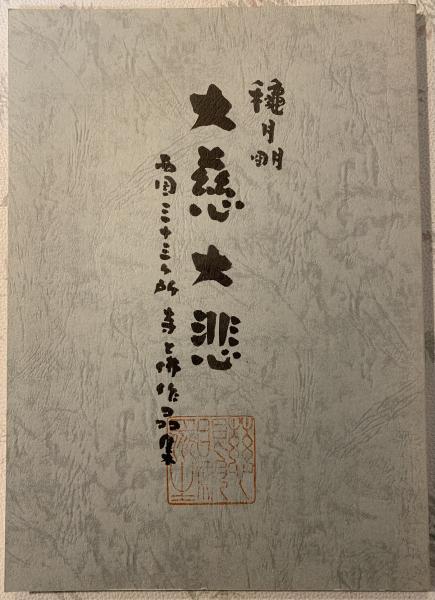 穐月明
大慈大悲
西国三十三ヶ所 寺と佛作品集